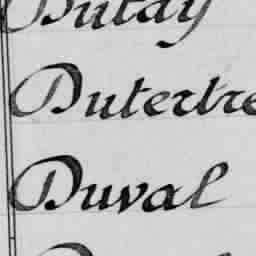 Dutay
Dutertre
Duval